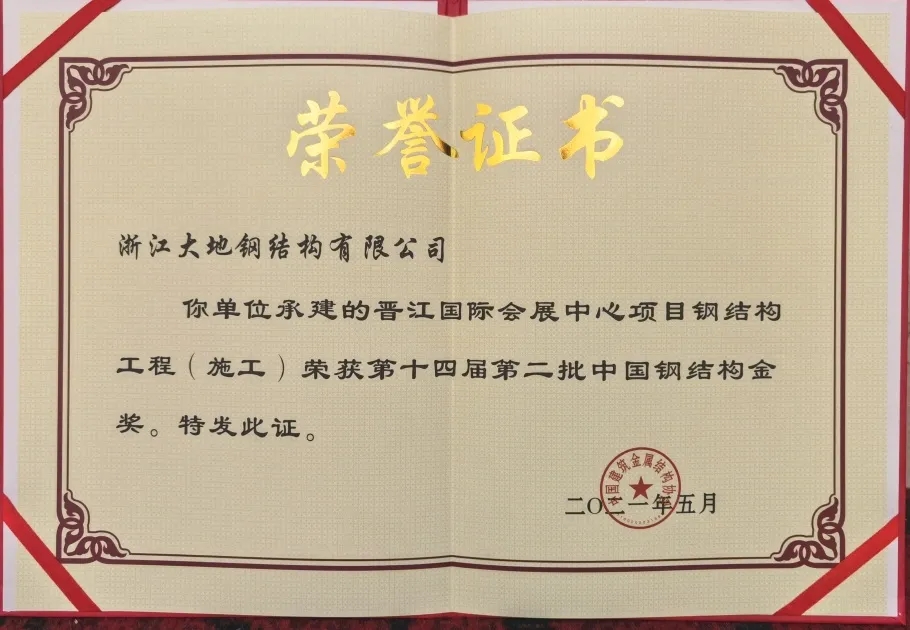 荣誉证书
浙江大地钢结构有限公司
你单位承建的晋江国际会展中心项目钢结构
工程（施工）荣获第十四届第二批中国钢结构金
奖。特发此证。
中国建筑金属结构协会
二〇二一年五月